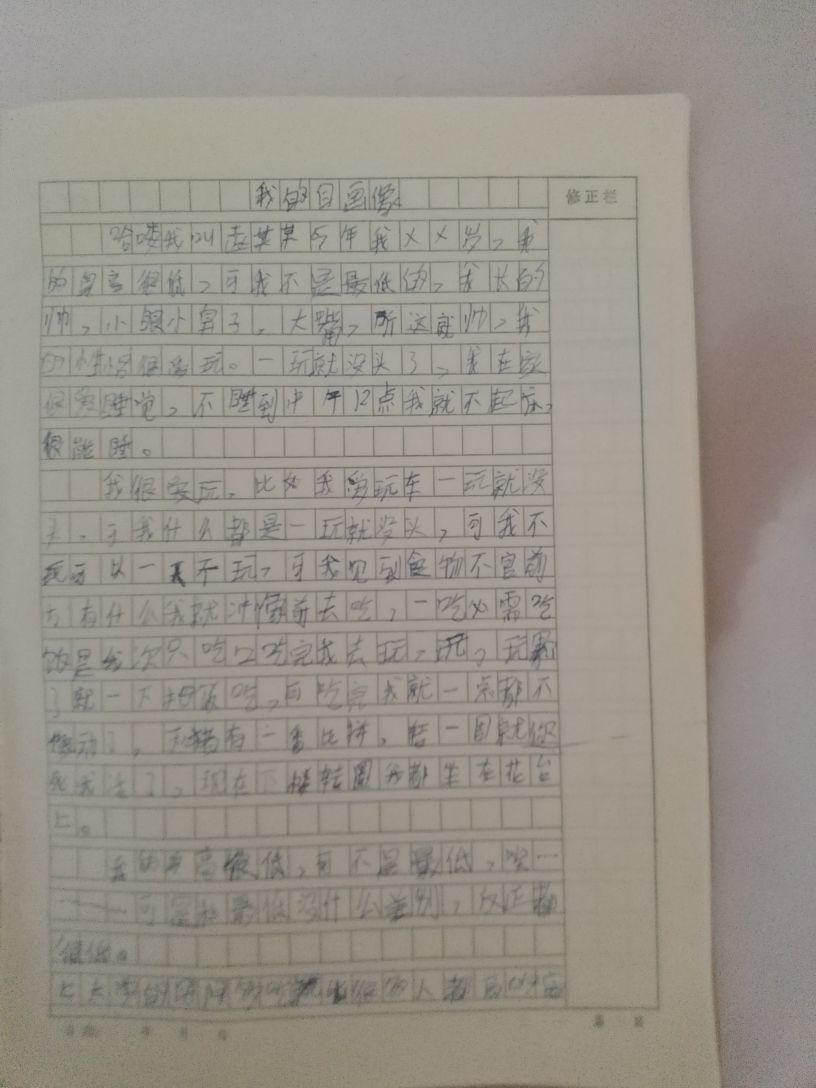 我的自画像
修正栏
哈喽我叫赵某某今年我XX岁，我
的身高很低，可我不是最低的，我长的
帅，小眼小鼻子，大嘴，所这就帅，我
的性格很爱玩。一玩就没头了，我在家
很爱睡觉，不睡到中午12点我就不起床，
很能睡。
我很爱玩，比如我爱玩车一玩就没
头，可我什么都是一玩就没头，可我不
玩可以一天不玩，可我见到食物不管前
方有什么我就冲前去吃，一吃
是我次只吃口吃完我去玩，玩，玩累
了就一下吃，可吃完我就一点都不
动了，有一番比拼，转一圈就你
死我活了，现在转圈我都坐在花台
上。
我的身高很低，可不是最低，唉…
……可是和最低没什么差别，反正都
很低。
上大
年 月